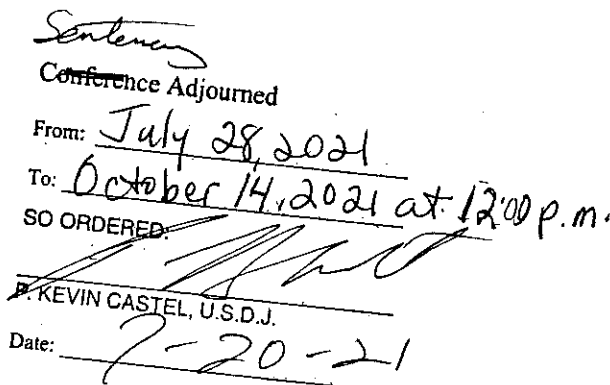 Sentencing
Conference Adjourned
From: July 28, 2021
To: October 14, 2021 at 12:00 p.m.
SO ORDERED.
P. KEVIN CASTEL, U.S.D.J.
Date: 7-20-21